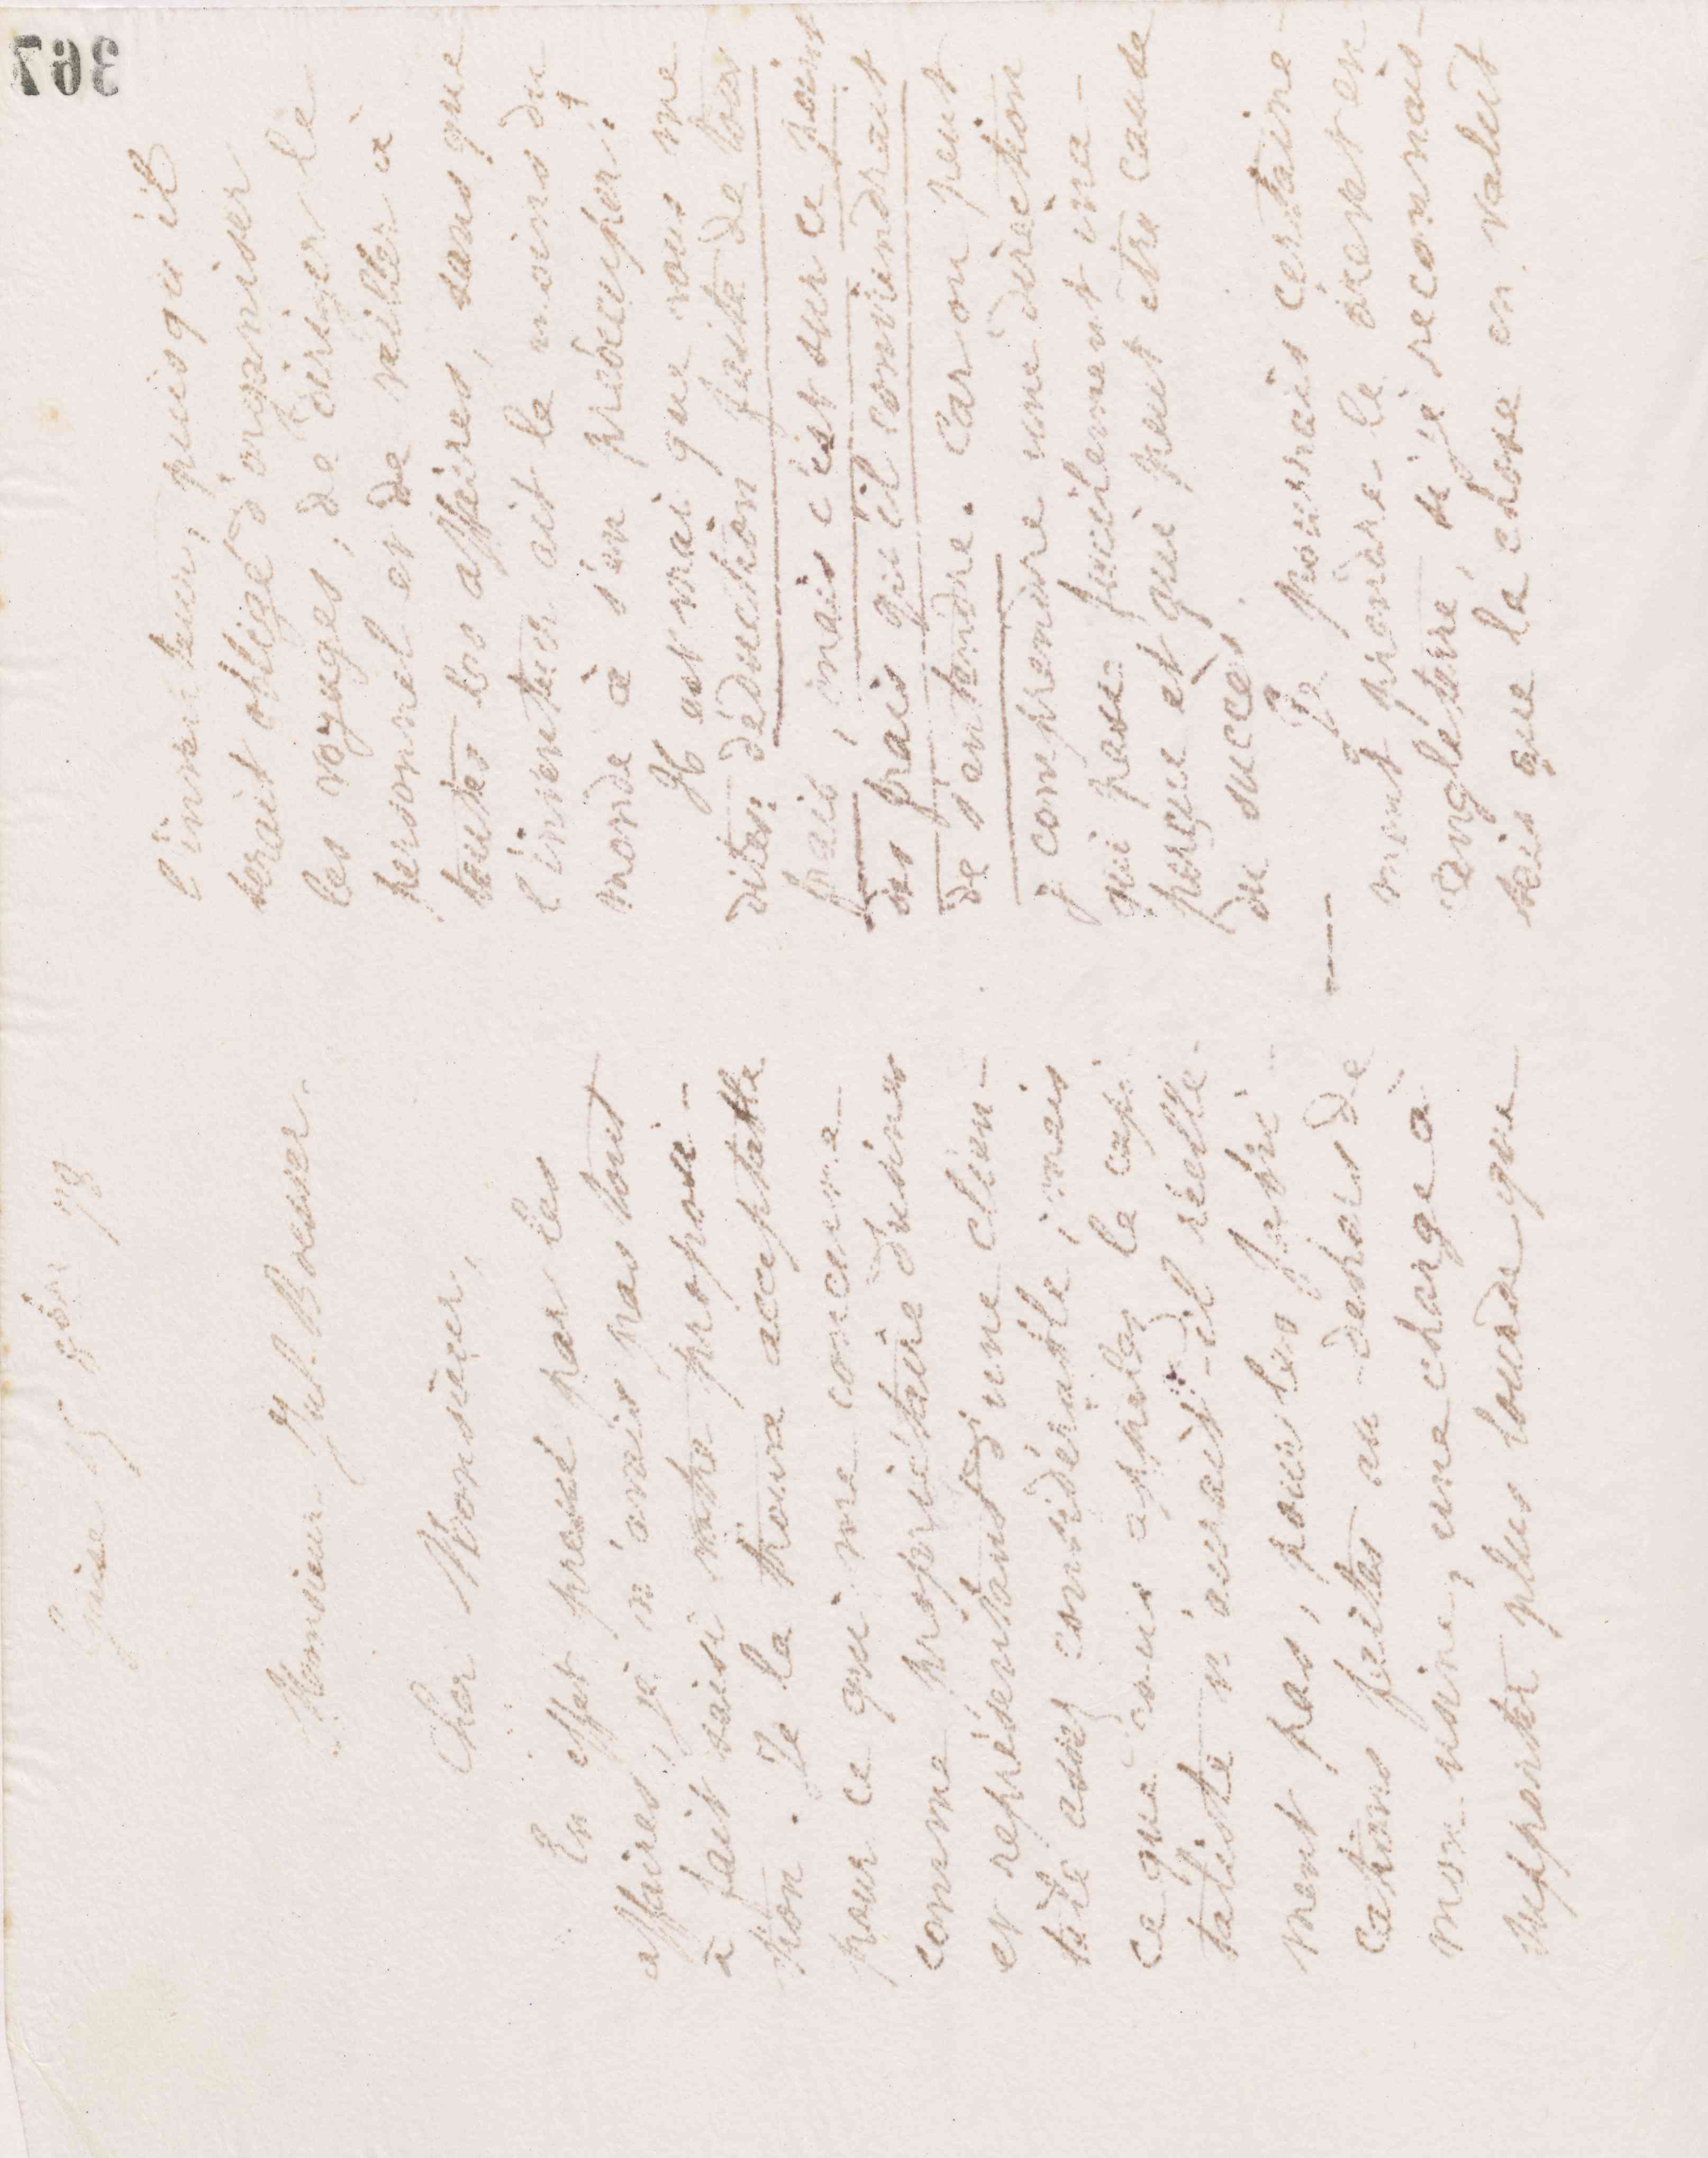 367
Guise 15 8bre 78
Monsieur Jul. Boesser.
Cher Monsieur,
En effet pressé par les
affaires, je n'avais pas tout
à fait saisi votre proposi-
tion. Je la trouve acceptable
pour ce qui me concerne
comme propriétaire d'usines
et représentant une clien-
tèle assez considérable, mais
ce que vous appelez le capi
taliste n'aurait-il réelle-
ment pas, pour les fabri-
cations faites au dehors de
mon usine, une charge à
supporter plus lourde que
l'inventeur, puisqu'il
serait obligé d'organiser
les voyages, de diriger le
personnel et de veiller à
toutes les affaires, sans que
l'inventeur ait le moins du
monde à s'en préoccuper?
Il est vrai que vous me
dites: déduction faite de tous
frais, mais c'est sur ce point
des frais qu'il conviendrait
de s'entendre. Car on peut
y comprendre une direction
qui pèse facilement une
perçue et qui peut être cause
du succès.
Je pourrais certaine-
ment prendre le brevet en
Angleterre, si je reconnais-
sais que la chose en valut